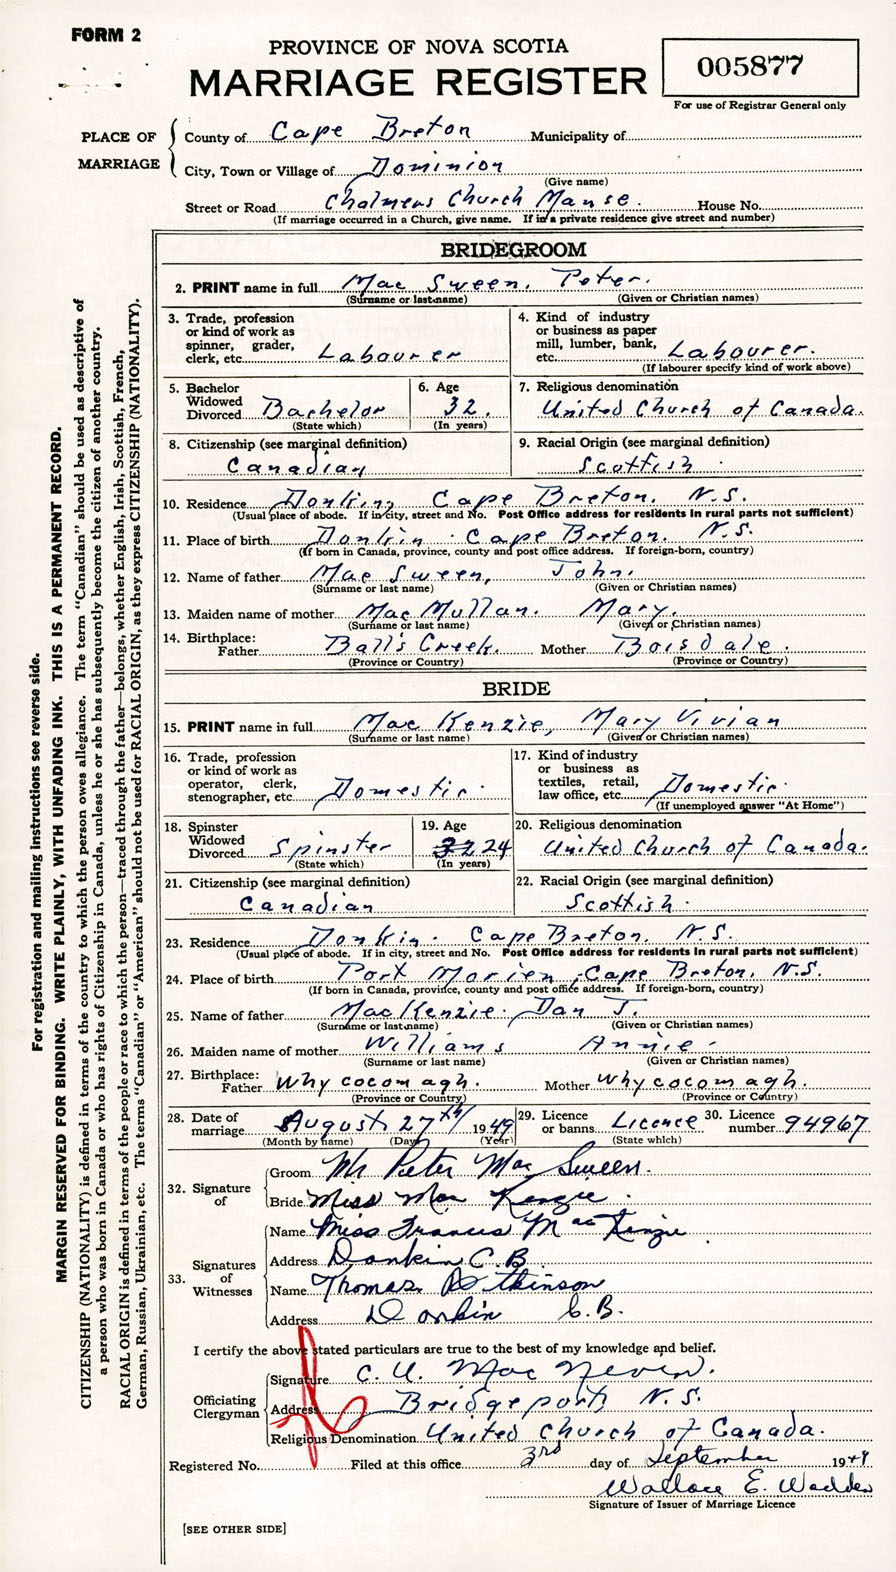 FORM 2
PROVINCE OF NOVA SCOTIA
MARRIAGE REGISTER
005877
For use of Registrar General only
PLACE OF MARRIAGE
County of Cape Breton Municipality of
City, Town or Village of Dominion
(Give name)
Street or Road Chalmers Church Manse. House No.
(If marriage occurred in a Church, give name. If in a private residence give street and number)
BRIDEGROOM
2. PRINT name in full Mac Sween, Peter.
(Surname or last name) (Given or Christian names)
3. Trade, profession or kind of work as spinner, grader, clerk, etc. Labourer
4. Kind of industry or business as paper mill, lumber, bank, etc. Labourer.
(If labourer specify kind of work above)
5. Bachelor Widowed Divorced Bachelor
(State which)
6. Age 32.
(In years)
7. Religious denomination
United Church of Canada.
8. Citizenship (see marginal definition)
Canadian
9. Racial Origin (see marginal definition)
Scottish
10. Residence Donkin, Cape Breton, N.S.
(Usual place of abode. If in city, street and No. Post Office address for residents in rural parts not sufficient)
11. Place of birth Donkin. Cape Breton. N.S.
(If born in Canada, province, county and post office address. If foreign-born, country)
12. Name of father Mac Sween, John.
(Surname or last name) (Given or Christian names)
13. Maiden name of mother Mac Mullan. Mary.
(Surname or last name) (Given or Christian names)
14. Birthplace: Father Ball's Creek. Mother Boisdale.
(Province or Country) (Province or Country)
BRIDE
15. PRINT name in full Mac Kenzie, Mary Vivian
(Surname or last name) (Given or Christian names)
16. Trade, profession or kind of work as operator, clerk, stenographer, etc. Domestic.
17. Kind of industry or business as textiles, retail, law office, etc. Domestic.
(If unemployed answer "At Home")
18. Spinster Widowed Divorced Spinster
(State which)
19. Age 32 24
(In years)
20. Religious denomination
United Church of Canada.
21. Citizenship (see marginal definition)
Canadian
22. Racial Origin (see marginal definition)
Scottish.
23. Residence Donkin. Cape Breton. N.S.
(Usual place of abode. If in city, street and No. Post Office address for residents in rural parts not sufficient)
24. Place of birth Port Morien, Cape Breton, N.S.
(If born in Canada, province, county and post office address. If foreign-born, country)
25. Name of father Mac Kenzie. Dan J.
(Surname or last name) (Given or Christian names)
26. Maiden name of mother Williams Annie.
(Surname or last name) (Given or Christian names)
27. Birthplace: Father Whycocomagh. Mother Whycocomagh.
(Province or Country) (Province or Country)
28. Date of marriage August 27th 1949
(Month by name) (Day) (Year)
29. Licence or banns Licence
(State which)
30. Licence number 94967
32. Signature of
Groom Mr Peter Mac Sween.
Bride Miss Mac Kenzie.
33. Signatures of Witnesses
Name Miss Francis MacKinzie
Address Donkin C.B.
Name Thomas Atkinson
Address Donkin C.B.
I certify the above stated particulars are true to the best of my knowledge and belief.
Officiating Clergyman
Signature C. U. Mac Neven.
Address Bridgeport, N.S.
Religious Denomination United Church of Canada.
Registered No. Filed at this office 3rd day of September 1949
Wallace E. Wadden
Signature of Issuer of Marriage Licence
[SEE OTHER SIDE]
For registration and mailing instructions see reverse side.
MARGIN RESERVED FOR BINDING. WRITE PLAINLY, WITH UNFADING INK. THIS IS A PERMANENT RECORD.
CITIZENSHIP (NATIONALITY) is defined in terms of the country to which the person owes allegiance. The term "Canadian" should be used as descriptive of
a person who was born in Canada or who has rights of Citizenship in Canada, unless he or she has subsequently become the citizen of another country.
RACIAL ORIGIN is defined in terms of the people or race to which the person—traced through the father—belongs, whether English, Irish, Scottish, French,
German, Russian, Ukrainian, etc. The terms "Canadian" or "American" should not be used for RACIAL ORIGIN, as they express CITIZENSHIP (NATIONALITY).